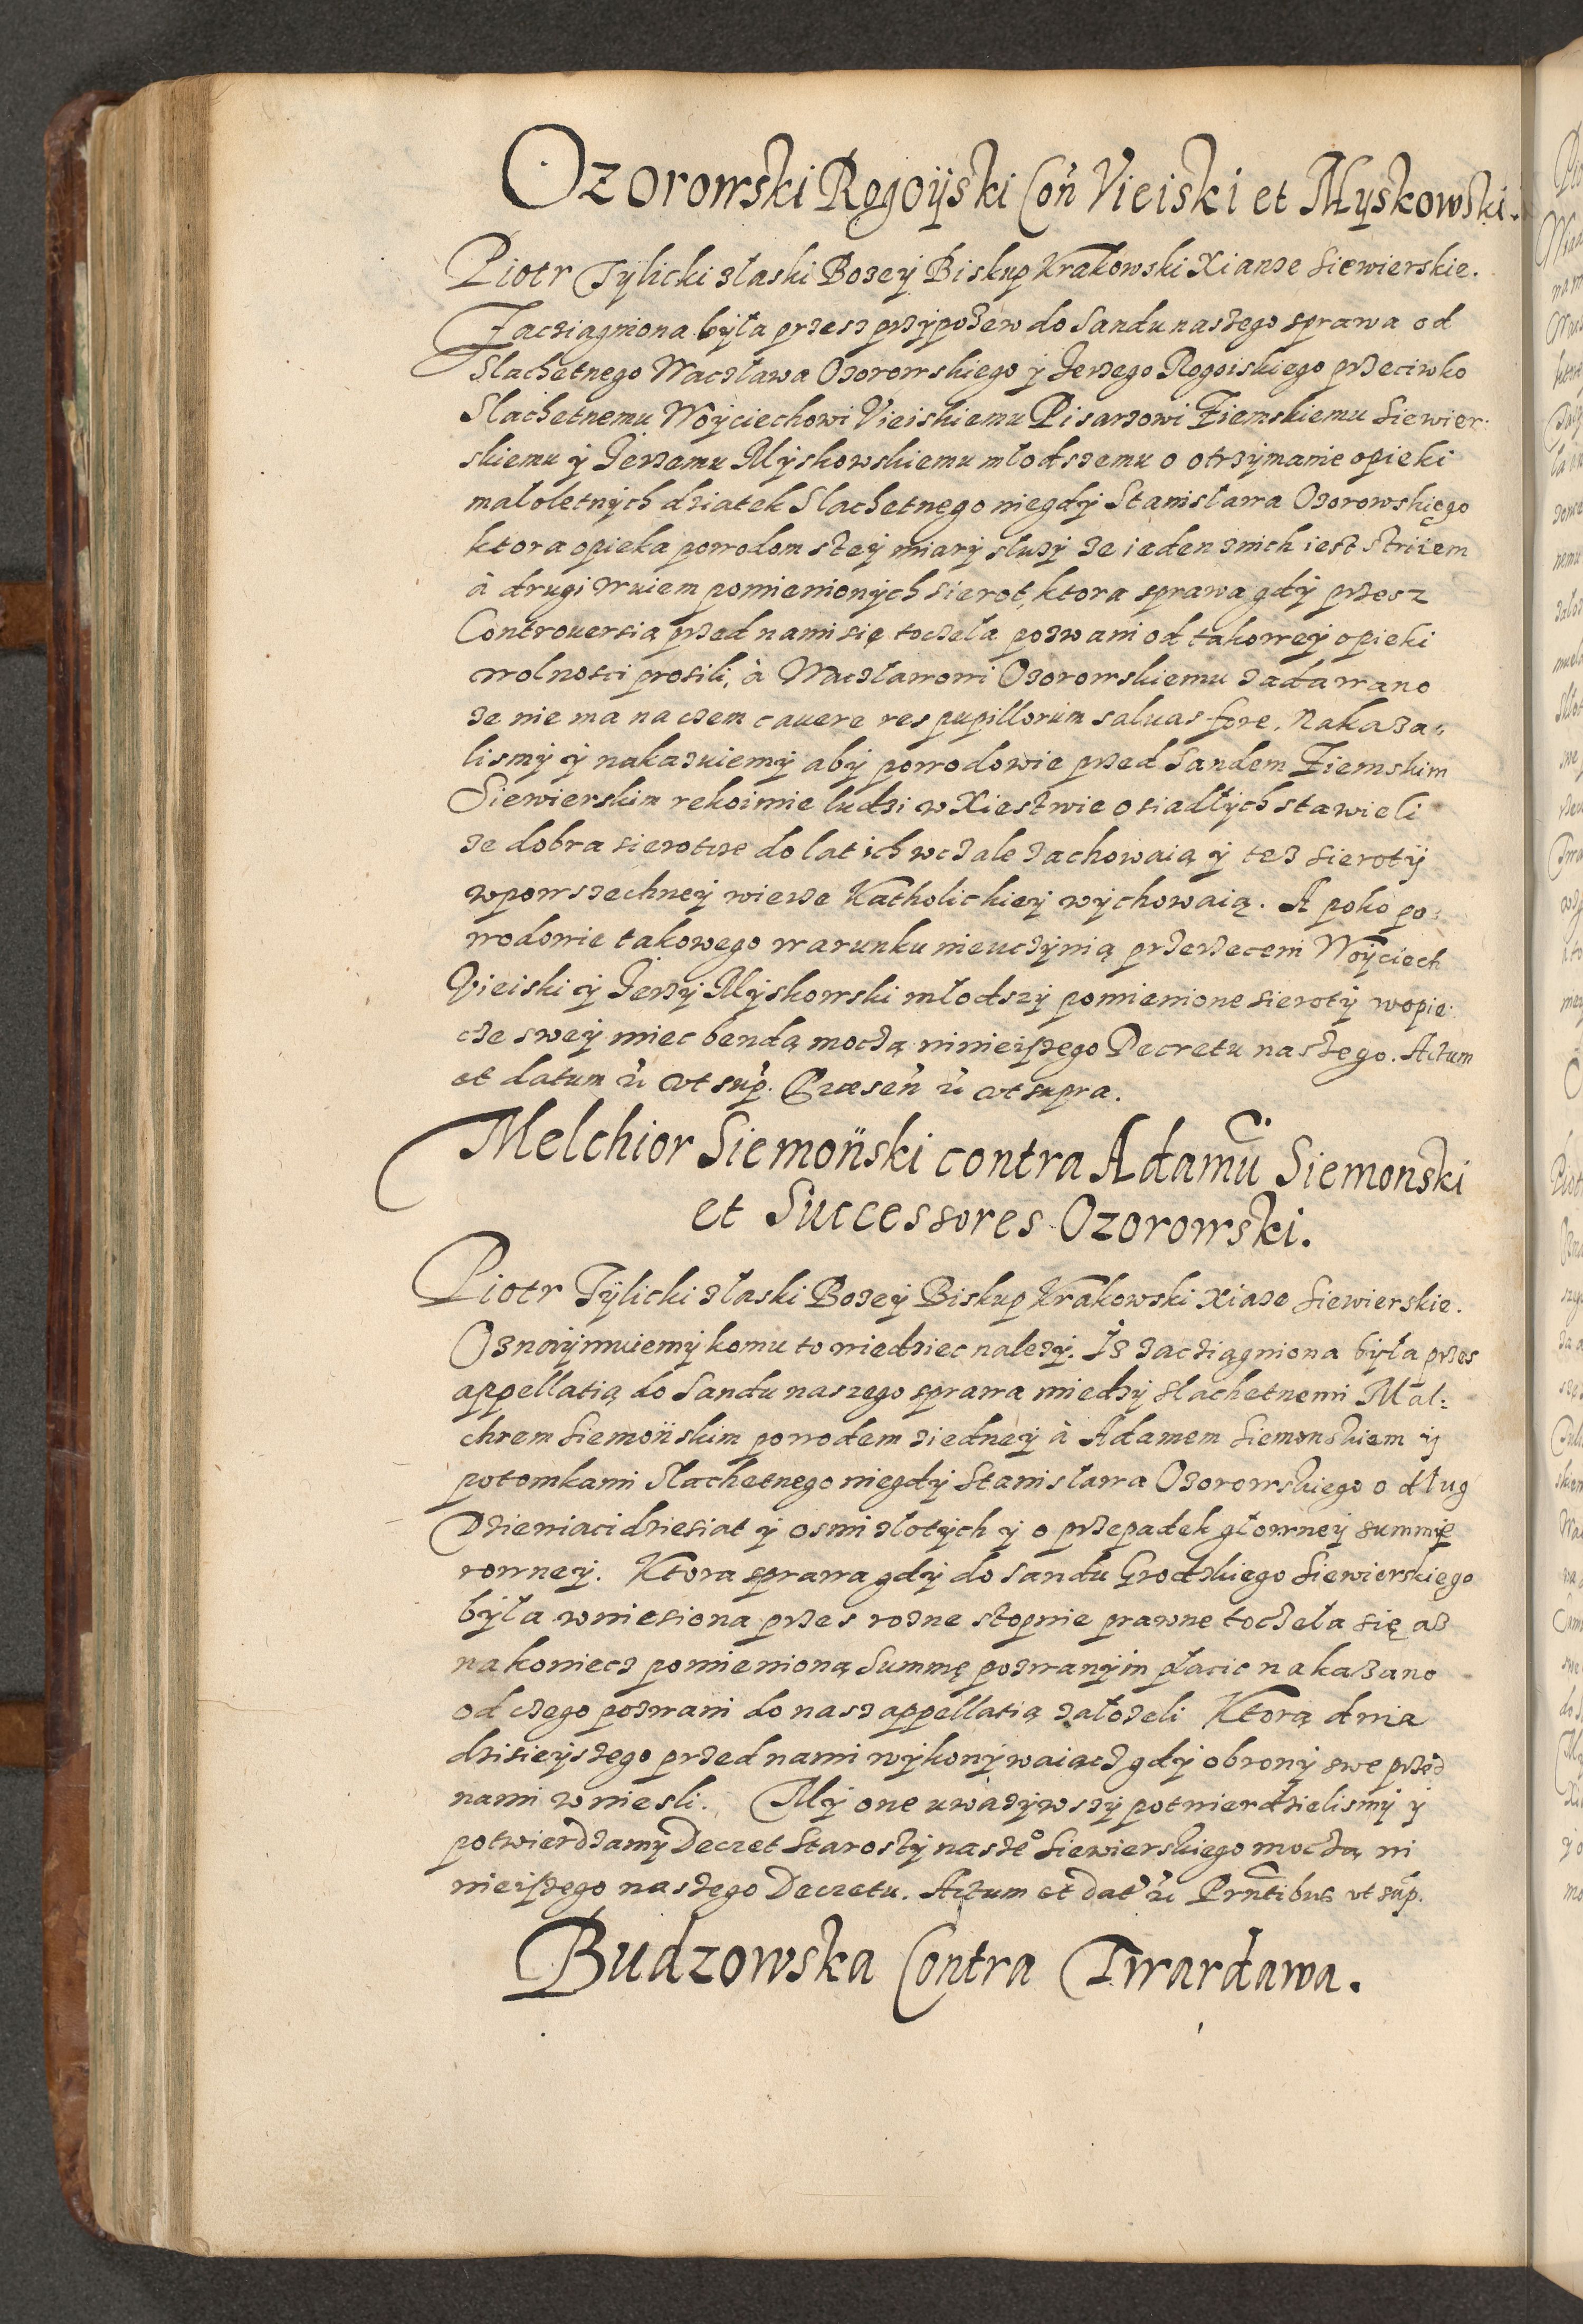 Ozorowski Rogoÿski Coň Vieiski et Myskowski.
Piotr Tÿlicki złaski Bozeÿ Biskup Krakowski Xianze Siewierskie.
Zaciągniona bÿła przesz przÿpozew do Sandu naszego sprawa od
Slachetnego Wacława Ozorowskiego ÿ Jerzego Rogoiskiego przeciwko
Slachetnemu Woÿciechowi Vieiskiemu Pisarzowi Ziemskiemu Siewier-
skiemu ÿ Jerzemu Mÿskowskiemu młodszemu o otrzÿmanie opieki
małoletnÿch dziatek Slachetnego niegdÿ Stanisława Ozorowskiego
ktora opieka powodom zteÿ miarÿ słuzÿ ze ieden znich iest striiem
à drugi wuiem pomienionÿch sierot, ktora sprawa gdÿ przesz
Controuersią przed nami się toczeła pozwani od takoweÿ opieki
wolnosci prosili, à Wacławowi Ozorowskiemu zadawano
ze nie ma na czem cauere res pupillorum saluas fore. Nakaza-
lismÿ ÿ nakazuiemÿ abÿ powodowie przed Sandem Ziemskim
Siewierskim rekoimie ludzi w Xiestwie osiadłÿch stawieli
ze dobra sierotze do lat ich wczale zachowaią ÿ tez sierotÿ
wpowszechneÿ wierze Katholickieÿ wÿchowaią. A poko po-
wodowie takowego warunku nieuczÿnią przerzeceni Woÿciech
Vieiski ÿ Jerzÿ Mÿskowski młodszÿ pomienione sierotÿ wopie-
cze sweÿ miec bendą moczą ninieiszego Decretu naszego. Actum
et datum ů vt sup̃. Præseň ů vt supra.
Melchior Siemoński contra Adamũ Siemonski
et Successores Ozorowski.
Piotr Tÿlicki złaski Bozeÿ Biskup Krakowski Xiaze Siewierskie.
Oznaÿmuiemÿ komu to wiedziec nalezÿ. Iz zaciągniona bÿła przes
appellatią do Sandu naszego sprawa miedzÿ slachetnemi Mal=
chrem Siemońskim powodem ziedneÿ à Adamem Siemonskiem ÿ
potomkami Slachetnego niegdÿ Stanisława Ozorowskiego o dług
Dziewiacidziesiat ÿ osmi złotÿch ÿ o przepadek głowneÿ summię
rowneÿ. Ktora sprawa gdÿ do Sandu Grodzkiego Siewierskiego
bÿła wniesiona przes rozne stopnie prawne toczeła się az
na koniecz pomienioną Summę pozwanÿm płacic nakazano
od czego pozwani do nasz appellatią załozeli Ktorą dnia
dzisieÿszego przed nami wÿkonÿwaiącz gdÿ obronÿ swe przed
nami wniesli. Mÿ one uwazÿwszÿ potwierdzielismÿ ÿ
potwierdzamÿ Decret Starostÿ naszeº Siewierskiego moczą ni
nieiszego naszego Decretu. Actum et dat̃ ů Prñtibus vt sup̃.
Budzowska Contra Twardawa.